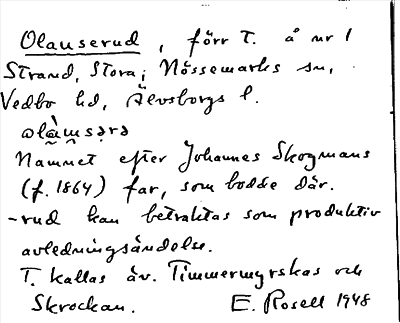 Olauserud, förr T. å nr 1
Strand, Stora; Nössemarks sn,
Vedbo hd, Älvsborgs l.
Namnet efter Johannes Skogmans
(f. 1864) far, som bodde där.
-rud kan betraktas som produktiv
avledningsändelse.
T. kallas äv. Timmermyrskas och
Skrockan. E. Rosell 1948